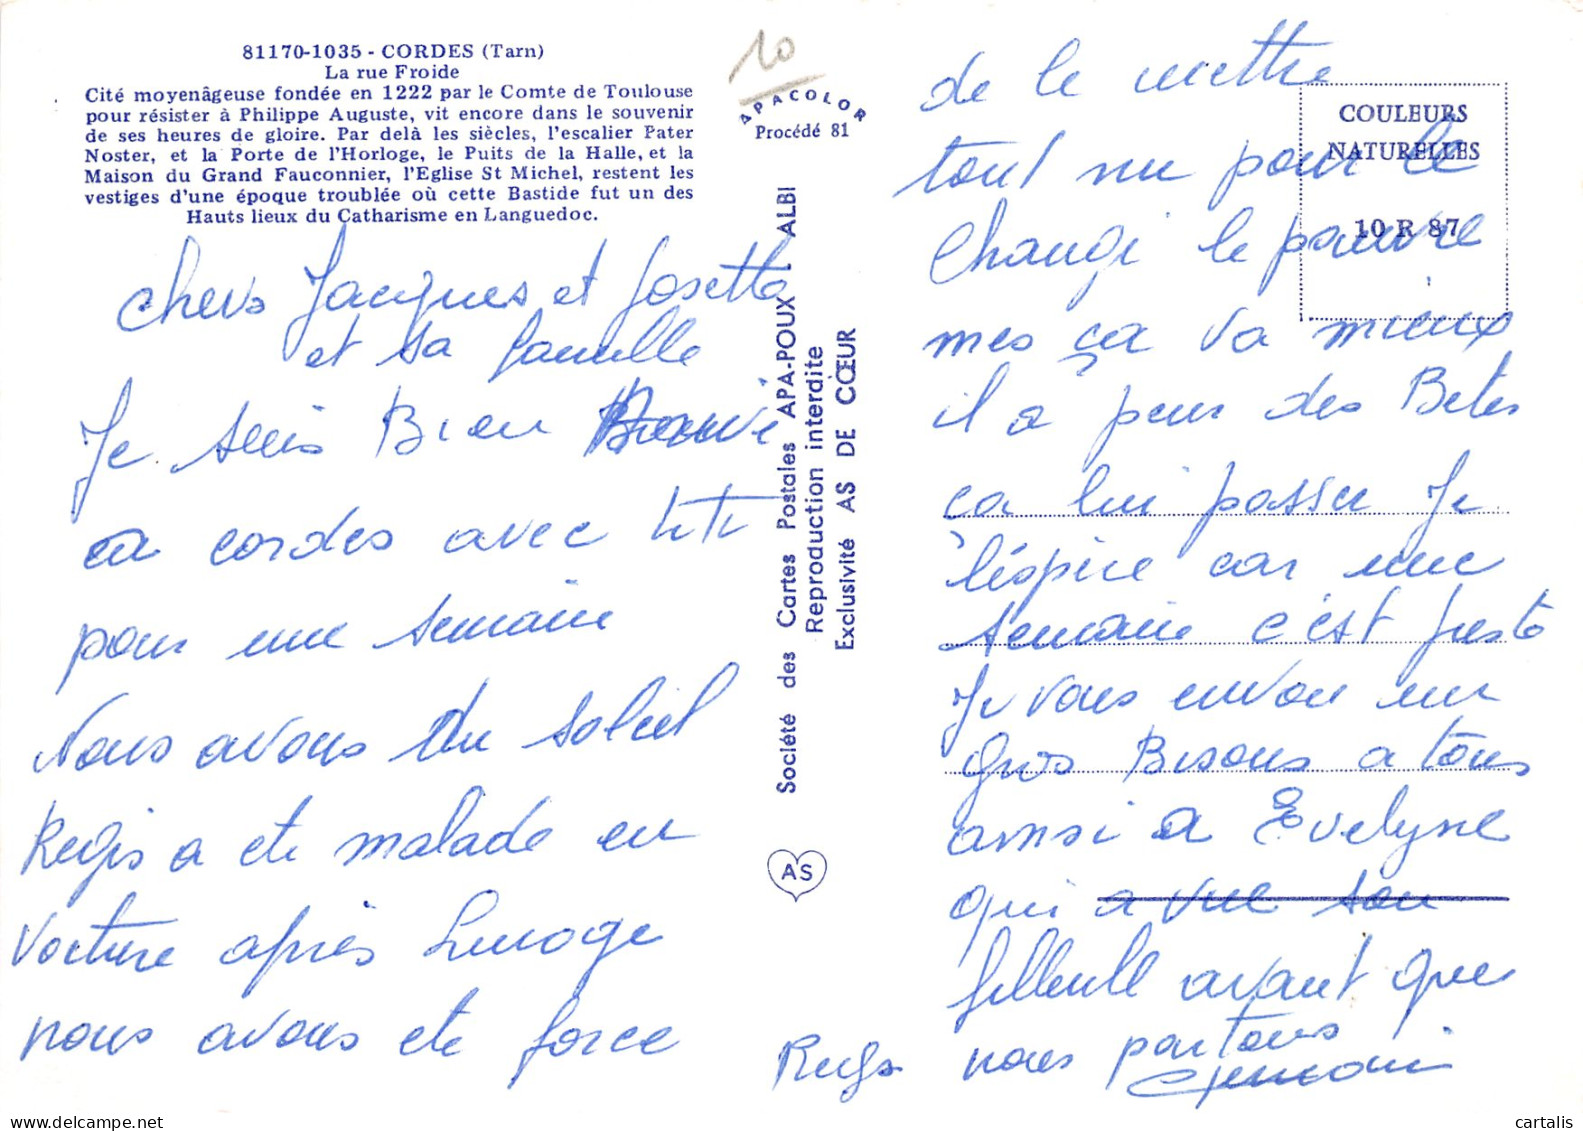 81170-1035 - CORDES (Tarn)
La rue Froide
Cité moyenâgeuse fondée en 1222 par le Comte de Toulouse
pour résister à Philippe Auguste, vit encore dans le souvenir
de ses heures de gloire. Par delà les siècles, l'escalier Pater
Noster, et la Porte de l'Horloge, le Puits de la Halle, et la
Maison du Grand Fauconnier, l'Eglise St Michel, restent les
vestiges d'une époque troublée où cette Bastide fut un des
Hauts lieux du Catharisme en Languedoc.
chers Jacques et Josette
et sa famille
Je suis Bien
a cordes avec titi
pour une semaine
Nous avons du soleil
Regis a ete malade en
voiture après Limoge
nous avons ete force
10
APACOLOR
Procédé 81
Société des Cartes Postales APA-POUX - ALBI
Reproduction interdite
Exclusivité AS DE CŒUR
AS
COULEURS
NATURELLES
10 R 87
de le mettre
tout nu pour le
changi le pauvre
mes ça va mieux
il a peur des Betes
ca lui passer Je
l'éspire car une
semaine c'est juste
Je vous envoi un
gros Bisous a tous
ainsi a Evelyne
qui a vue son
filleull avant que
nous partons
Regis